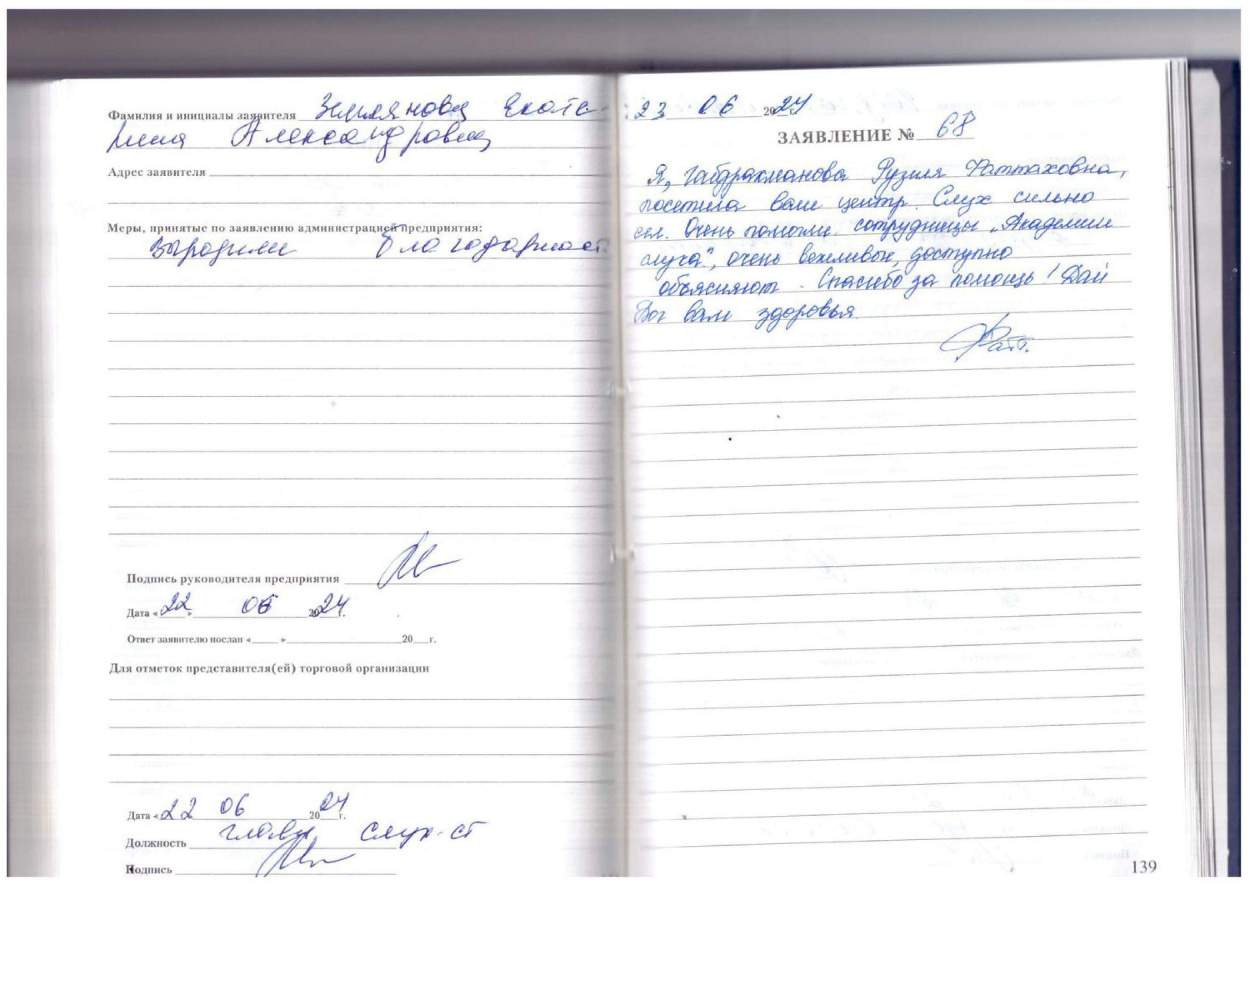 Фамилия и инициалы заявителя Землянова Екате-
рина Александровна
Адрес заявителя
Меры, принятые по заявлению администрацией предприятия:
Выразили благодарност
Подпись руководителя предприятия
Дата «22» 06 2024г.
Ответ заявителю послан « » 20 г.
Для отметок представителя(ей) торговой организации
Дата «22 06 2024г.
Должность слух-ст
Подпись
23 06 2024
ЗАЯВЛЕНИЕ № 68
Я, Габдрахманова Рузия Фаттаховна,
посетила ваш центр. Слух сильно
сел. Очень помогли сотрудницы „Академии
слуха", очень вежливые, доступно
объясняют. Спасибо за помощь! Дай
Бог вам здоровья
139